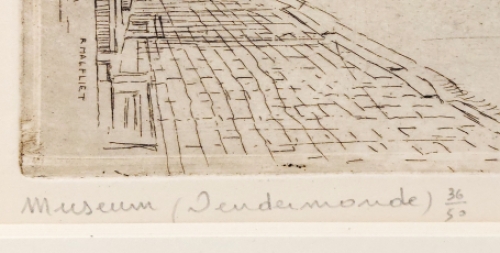 R. MALFLIET
Museum (Dendermonde) 36/50